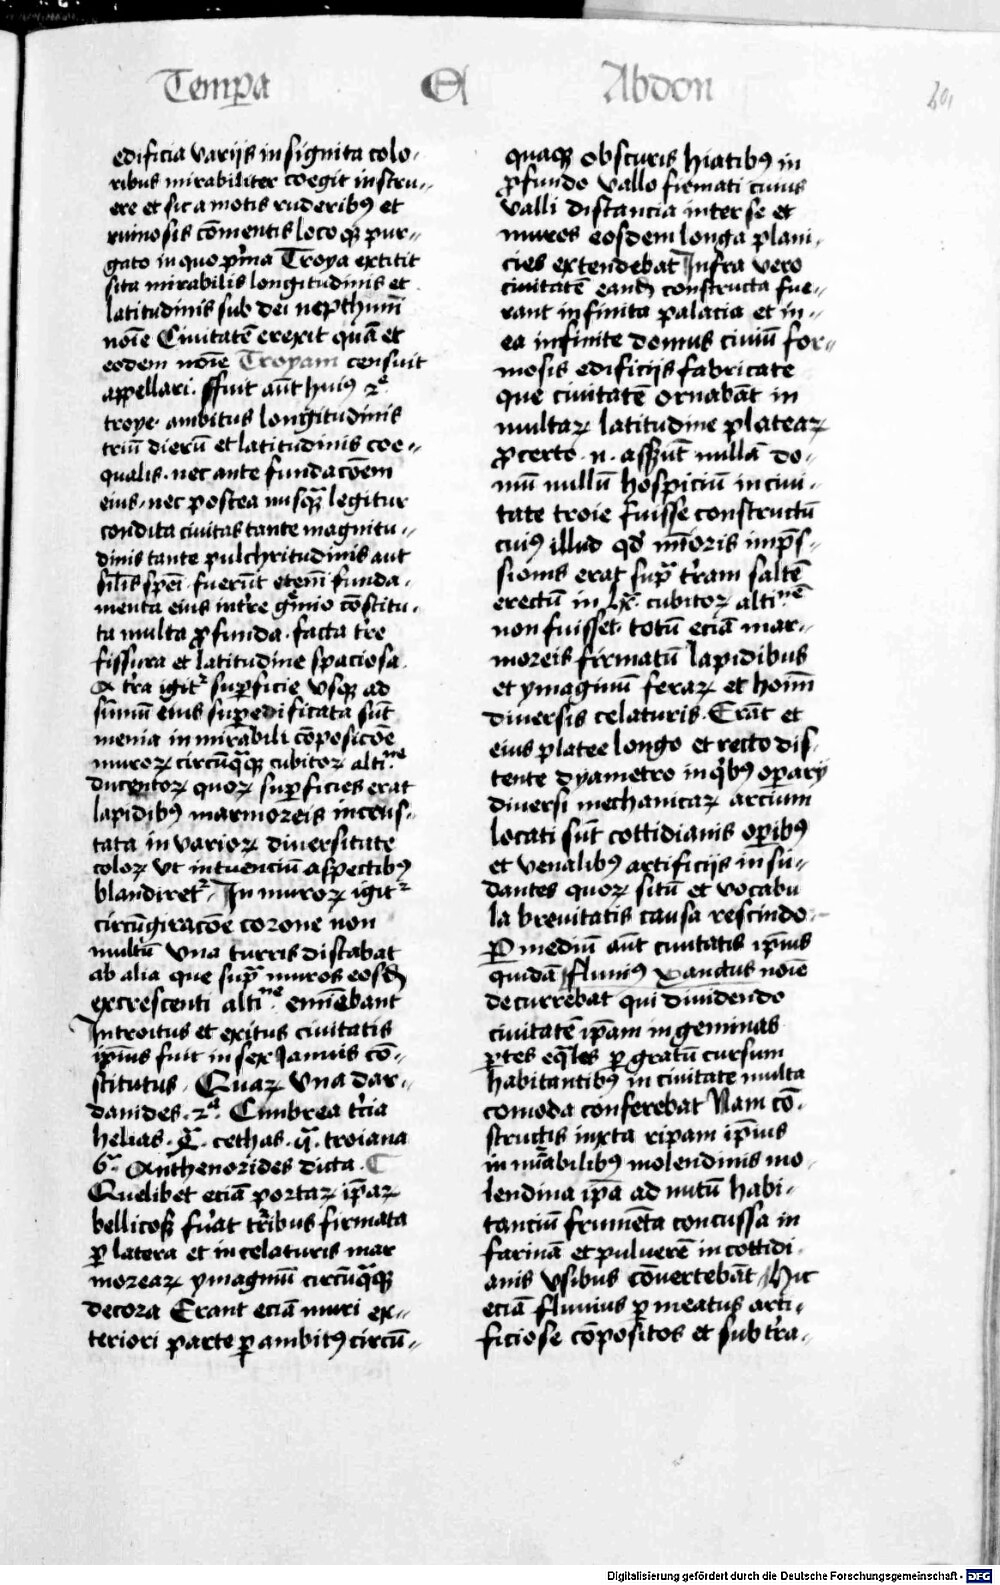 Temꝑa Et Abdon
edificia varijs insignita colo-
ribus mirabiliter coegit instru-
ere et sic amotis ruderibꝰ et
ruinosis cōmentis locoqꝫ pur-
gato in quo pͥma Troya extitit
sita mirabilis longitudinis et
latitudinis sub dei nepthuni
noīe Civitatē erexit quā et
eodem noīe Troyam censuit
appellari. ffuit aūt huiꝰ 2ͤ
troye. ambitus longitudinis
triū dierū et latitudinis coe-
qualis. nec ante fundacōem
eius. nec postea nusqᷓ legitur
condita civitas tante magnitu-
dinis tante pulchritudinis aut
sīlis spēi. fuerūt eteīm funda-
menta eius in tr̄e gͤmio cōstitu-
ta multa ꝓfunda. facta tr̄e
fissura et latitudine spaciosa.
A tr̄a igitᷣ suꝑficie usqꝫ ad
sūmū eius suꝑedificata sūt
menia in mirabili cōposicōe
muroꝝ circūqᷓqꝫ cubitoꝝ altiⁿᵉ
ducentoꝝ quoꝝ suꝑficies erat
lapidibꝰ marmoreis incrus-
tata in varioꝝ diversitate
coloꝝ ut intuenciū aspectibꝰ
blandiretᷣ. In muroꝝ igitᷣ
circūgiracōe corone non
multū una turris distabat
ab alia que supᷓ muros eosdē
excrescenti altiⁿᵉ emīebant
Introitus et exitus civitatis
ip̄ius fuit in sex Januis cō-
stitutus. Quaꝝ una dar-
danides. 2ᵃ. Cimbrea tͨia
helias. 4ᵃ. cethas. qᵃ. troiana
6ᵃ. Anthenorides dicta.
Quelibet eciā portaꝝ ip̄aꝝ
bellicosꝭ fūat tͬribus firmata
ꝑ latera et in celaturis mar
moreaꝝ ymaginū circūqᷓqꝫ
decora Erant eciā muri ex-
teriori parte ꝑ ambitꝰ circū-
quaqꝫ obscuris hiatibꝰ in
ꝓfundo vallo firmati cuius
valli distancia inter se et
muros eosdem longa plani-
cies extendebat Infra vero
civitatē eandē constructa fue-
rant infinita palacia et in
ea infinite domus civiū for-
mosis edificijs fabricate
que civitatē ornabāt in
multaꝝ latitudine plateaꝝ
ꝓcerto .n. asserūt nullā do-
mū nullū hospiciū in civi-
tate troie fuisse constructū
cuiꝰ illud qd̄ mīoris imp̄s-
sionis erat supᷓ tr̄am saltē
erectū in lx. cubitoꝝ altiⁿᵉ
non fuisset. totū eciā mar-
moreis firmatū lapidibus
et ymaginū feraꝝ et hoīm
diversis celaturis. Erāt et
eius platee longo et recto dis-
tente dyametro in qͥbꝰ opary
diversi mechanicaꝝ arcium
locati sūt cottidianis oꝑibꝰ
et venalibꝰ artificijs insu-
dantes quoꝝ sitū et vocabu
la brevitatis causa rescindo.
Ꝑ mediū aūt civitatis ip̄ius
quidā fluvius Xanctus noīe
decurrebat qui dividendo
civitatē ip̄am in geminas
ꝑtes eqͣles ꝑ gratū cursum
habitantibꝰ in civitate multa
comoda conferebat Nam cō-
structis iuxta ripam ip̄ius
innūabilibus molendinis mo-
lendina ip̄a ad nutū habi-
tanciū frumēta concussa in
farinā et pulverē in cottidi-
anis usibus cōvertebāt Hic
eciā fluvius ꝑ meatus arti-
ficiose cōpositos et subtr̄a-
Digitalisierung gefördert durch die Deutsche Forschungsgemeinschaft - DFG